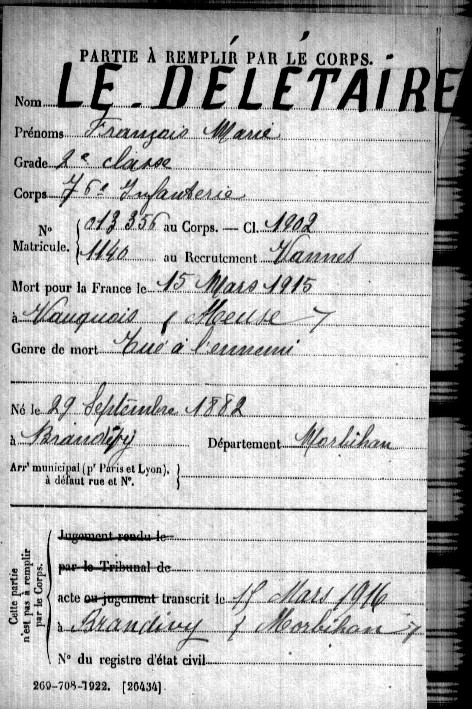 PARTIE À REMPLIR PAR LE CORPS.
Nom LE DÉLÉTAIRE
Prénoms François Marie
Grade 2e classe
Corps 76e Infanterie
No 013356 au Corps. — Cl. 1902
Matricule. 1140 au Recrutement Vannes
Mort pour la France le 15 Mars 1915
à Vauquois (Meuse)
Genre de mort Tué à l'ennemi
Né le 29 Septembre 1882
à Brandivy Département Morbihan
Arrt municipal (pr Paris et Lyon),
à défaut rue et No.
Cette partie
n'est pas à remplir
par le Corps.
Jugement rendu le
par le Tribunal de
acte ou jugement transcrit le 15 Mars 1916
à Brandivy (Morbihan)
No du registre d'état civil
269-708-1922. [26434]